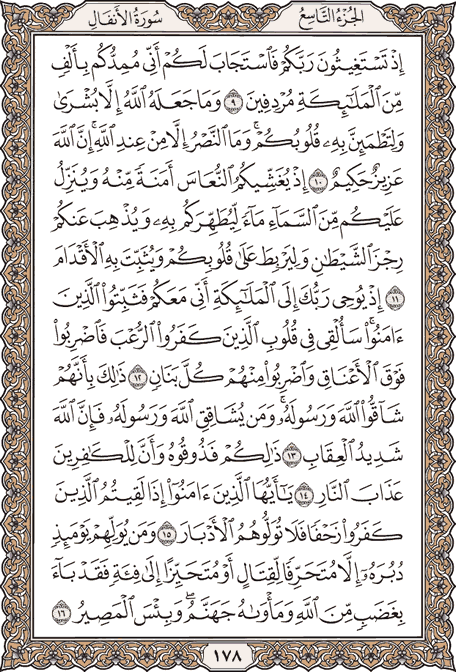 الجزء التاسع
سورة الأنفال
إِذْ تَسْتَغِيثُونَ رَبَّكُمْ فَٱسْتَجَابَ لَكُمْ أَنِّي مُمِدُّكُم بِأَلْفٍ
مِّنَ ٱلْمَلَٰٓئِكَةِ مُرْدِفِينَ ٩ وَمَا جَعَلَهُ ٱللَّهُ إِلَّا بُشْرَىٰ
وَلِتَطْمَئِنَّ بِهِۦ قُلُوبُكُمْ ۚ وَمَا ٱلنَّصْرُ إِلَّا مِنْ عِندِ ٱللَّهِ ۚ إِنَّ ٱللَّهَ
عَزِيزٌ حَكِيمٌ ١٠ إِذْ يُغَشِّيكُمُ ٱلنُّعَاسَ أَمَنَةً مِّنْهُ وَيُنَزِّلُ
عَلَيْكُم مِّنَ ٱلسَّمَآءِ مَآءً لِّيُطَهِّرَكُم بِهِۦ وَيُذْهِبَ عَنكُمْ
رِجْزَ ٱلشَّيْطَٰنِ وَلِيَرْبِطَ عَلَىٰ قُلُوبِكُمْ وَيُثَبِّتَ بِهِ ٱلْأَقْدَامَ
١١ إِذْ يُوحِي رَبُّكَ إِلَى ٱلْمَلَٰٓئِكَةِ أَنِّي مَعَكُمْ فَثَبِّتُوا۟ ٱلَّذِينَ
ءَامَنُوا۟ ۚ سَأُلْقِي فِي قُلُوبِ ٱلَّذِينَ كَفَرُوا۟ ٱلرُّعْبَ فَٱضْرِبُوا۟
فَوْقَ ٱلْأَعْنَاقِ وَٱضْرِبُوا۟ مِنْهُمْ كُلَّ بَنَانٍ ١٢ ذَٰلِكَ بِأَنَّهُمْ
شَآقُّوا۟ ٱللَّهَ وَرَسُولَهُۥ ۚ وَمَن يُشَاقِقِ ٱللَّهَ وَرَسُولَهُۥ فَإِنَّ ٱللَّهَ
شَدِيدُ ٱلْعِقَابِ ١٣ ذَٰلِكُمْ فَذُوقُوهُ وَأَنَّ لِلْكَٰفِرِينَ
عَذَابَ ٱلنَّارِ ١٤ يَٰٓأَيُّهَا ٱلَّذِينَ ءَامَنُوٓا۟ إِذَا لَقِيتُمُ ٱلَّذِينَ
كَفَرُوا۟ زَحْفًا فَلَا تُوَلُّوهُمُ ٱلْأَدْبَارَ ١٥ وَمَن يُوَلِّهِمْ يَوْمَئِذٍ
دُبُرَهُۥٓ إِلَّا مُتَحَرِّفًا لِّقِتَالٍ أَوْ مُتَحَيِّزًا إِلَىٰ فِئَةٍ فَقَدْ بَآءَ
بِغَضَبٍ مِّنَ ٱللَّهِ وَمَأْوَىٰهُ جَهَنَّمُ ۖ وَبِئْسَ ٱلْمَصِيرُ ١٦
١٧٨